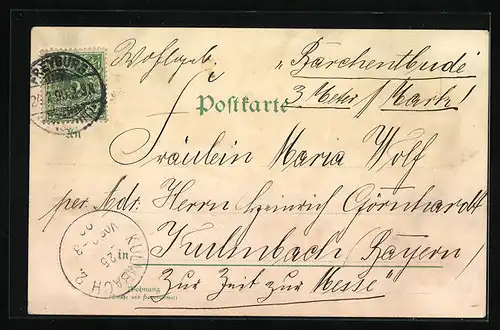 FREYBURG
Wohlgeb.
„Bärchentbude
3 Meter 1 Mark!
Postkarte
An
Fräulein Maria Wolf
per Adr. Herrn Heinrich
in Kulmbach (Bayern)
KULMBACH 2.
Zur Zeit zur Messe"
Wohnung
(Straße und Hausnummer)